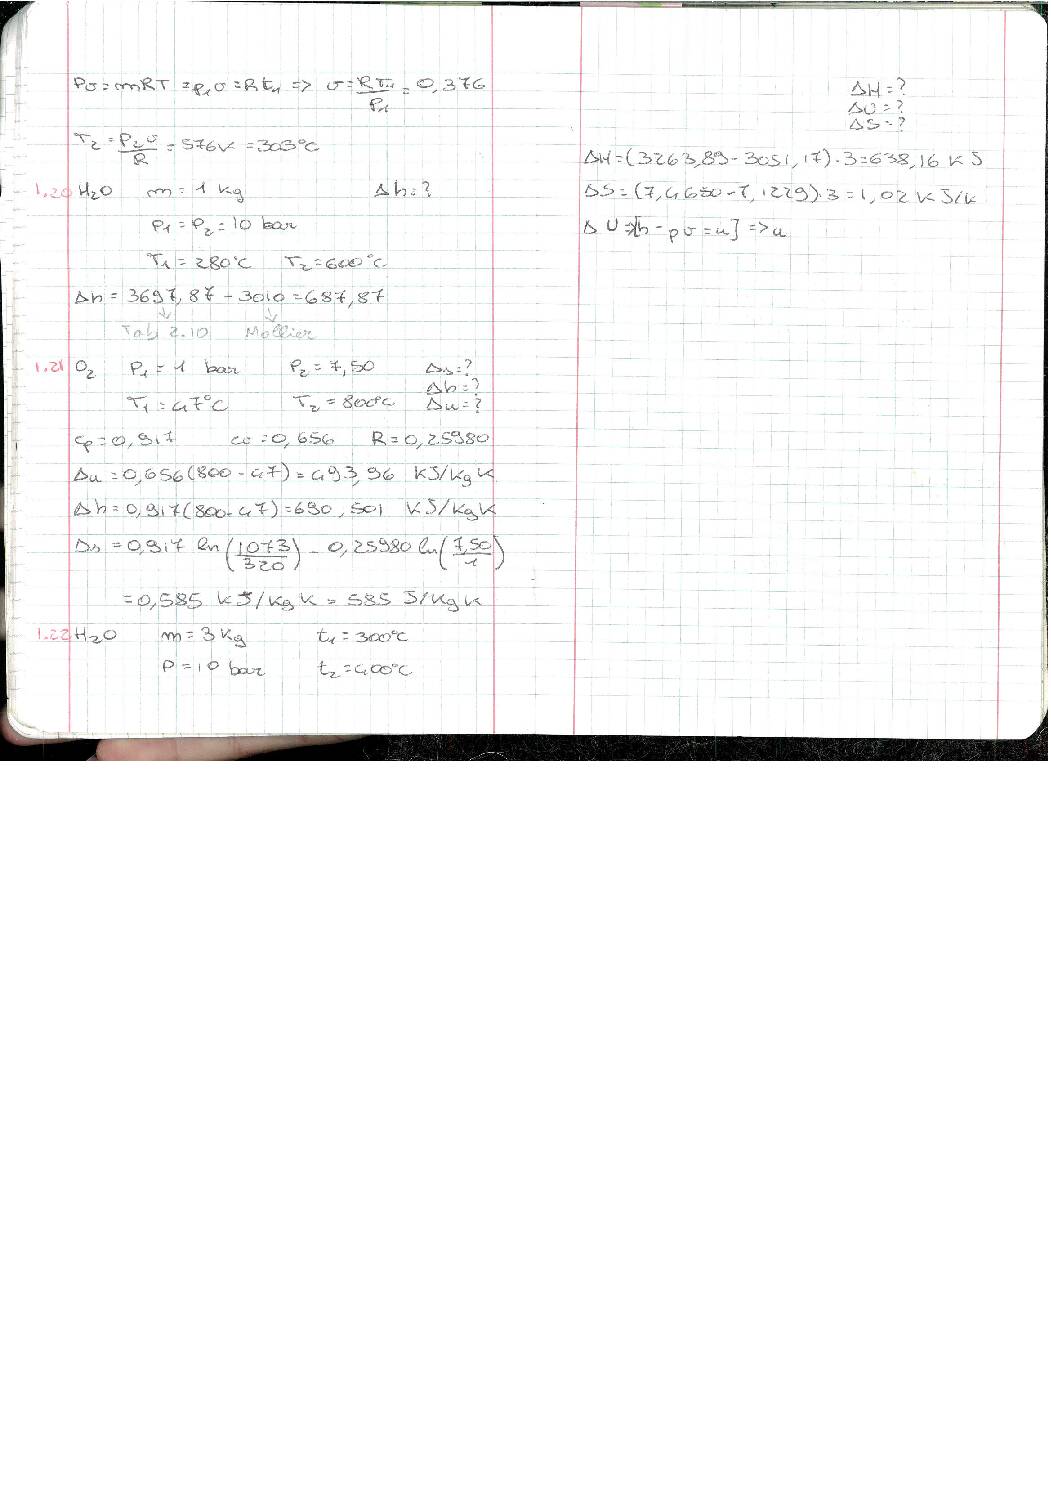 Pv = mRT = p₁v = Rt₁ => v = RT₁/P₁ = 0,376
T₂ = P₂v/R = 576K = 303°C
1.20 H₂O m = 1 kg Δh = ?
P₁ = P₂ = 10 bar
T₁ = 280°C T₂ = 600°C
Δh = 3697,87 - 3010 = 687,87
↓ ↓
Tab 2.10 Mollier
1.21 O₂ P₁ = 1 bar P₂ = 7,50 Δs = ?
Δh = ?
T₁ = 47°C T₂ = 800°C Δu = ?
cp = 0,917 cv = 0,656 R = 0,25980
Δu = 0,656(800 - 47) = 493,96 kJ/kgK
Δh = 0,917(800 - 47) = 690,501 kJ/kgK
Δs = 0,917 ln(1073/320) - 0,25980 ln(7,50/1)
= 0,585 kJ/kgK = 585 J/kgK
1.22 H₂O m = 3 kg t₁ = 300°C
P = 10 bar t₂ = 400°C
ΔH = ?
ΔU = ?
ΔS = ?
ΔH = (3263,89 - 3051,17)·3 = 638,16 kJ
ΔS = (7,4650 - 7,1229)·3 = 1,02 kJ/K
ΔU => [h - pv = u] => u